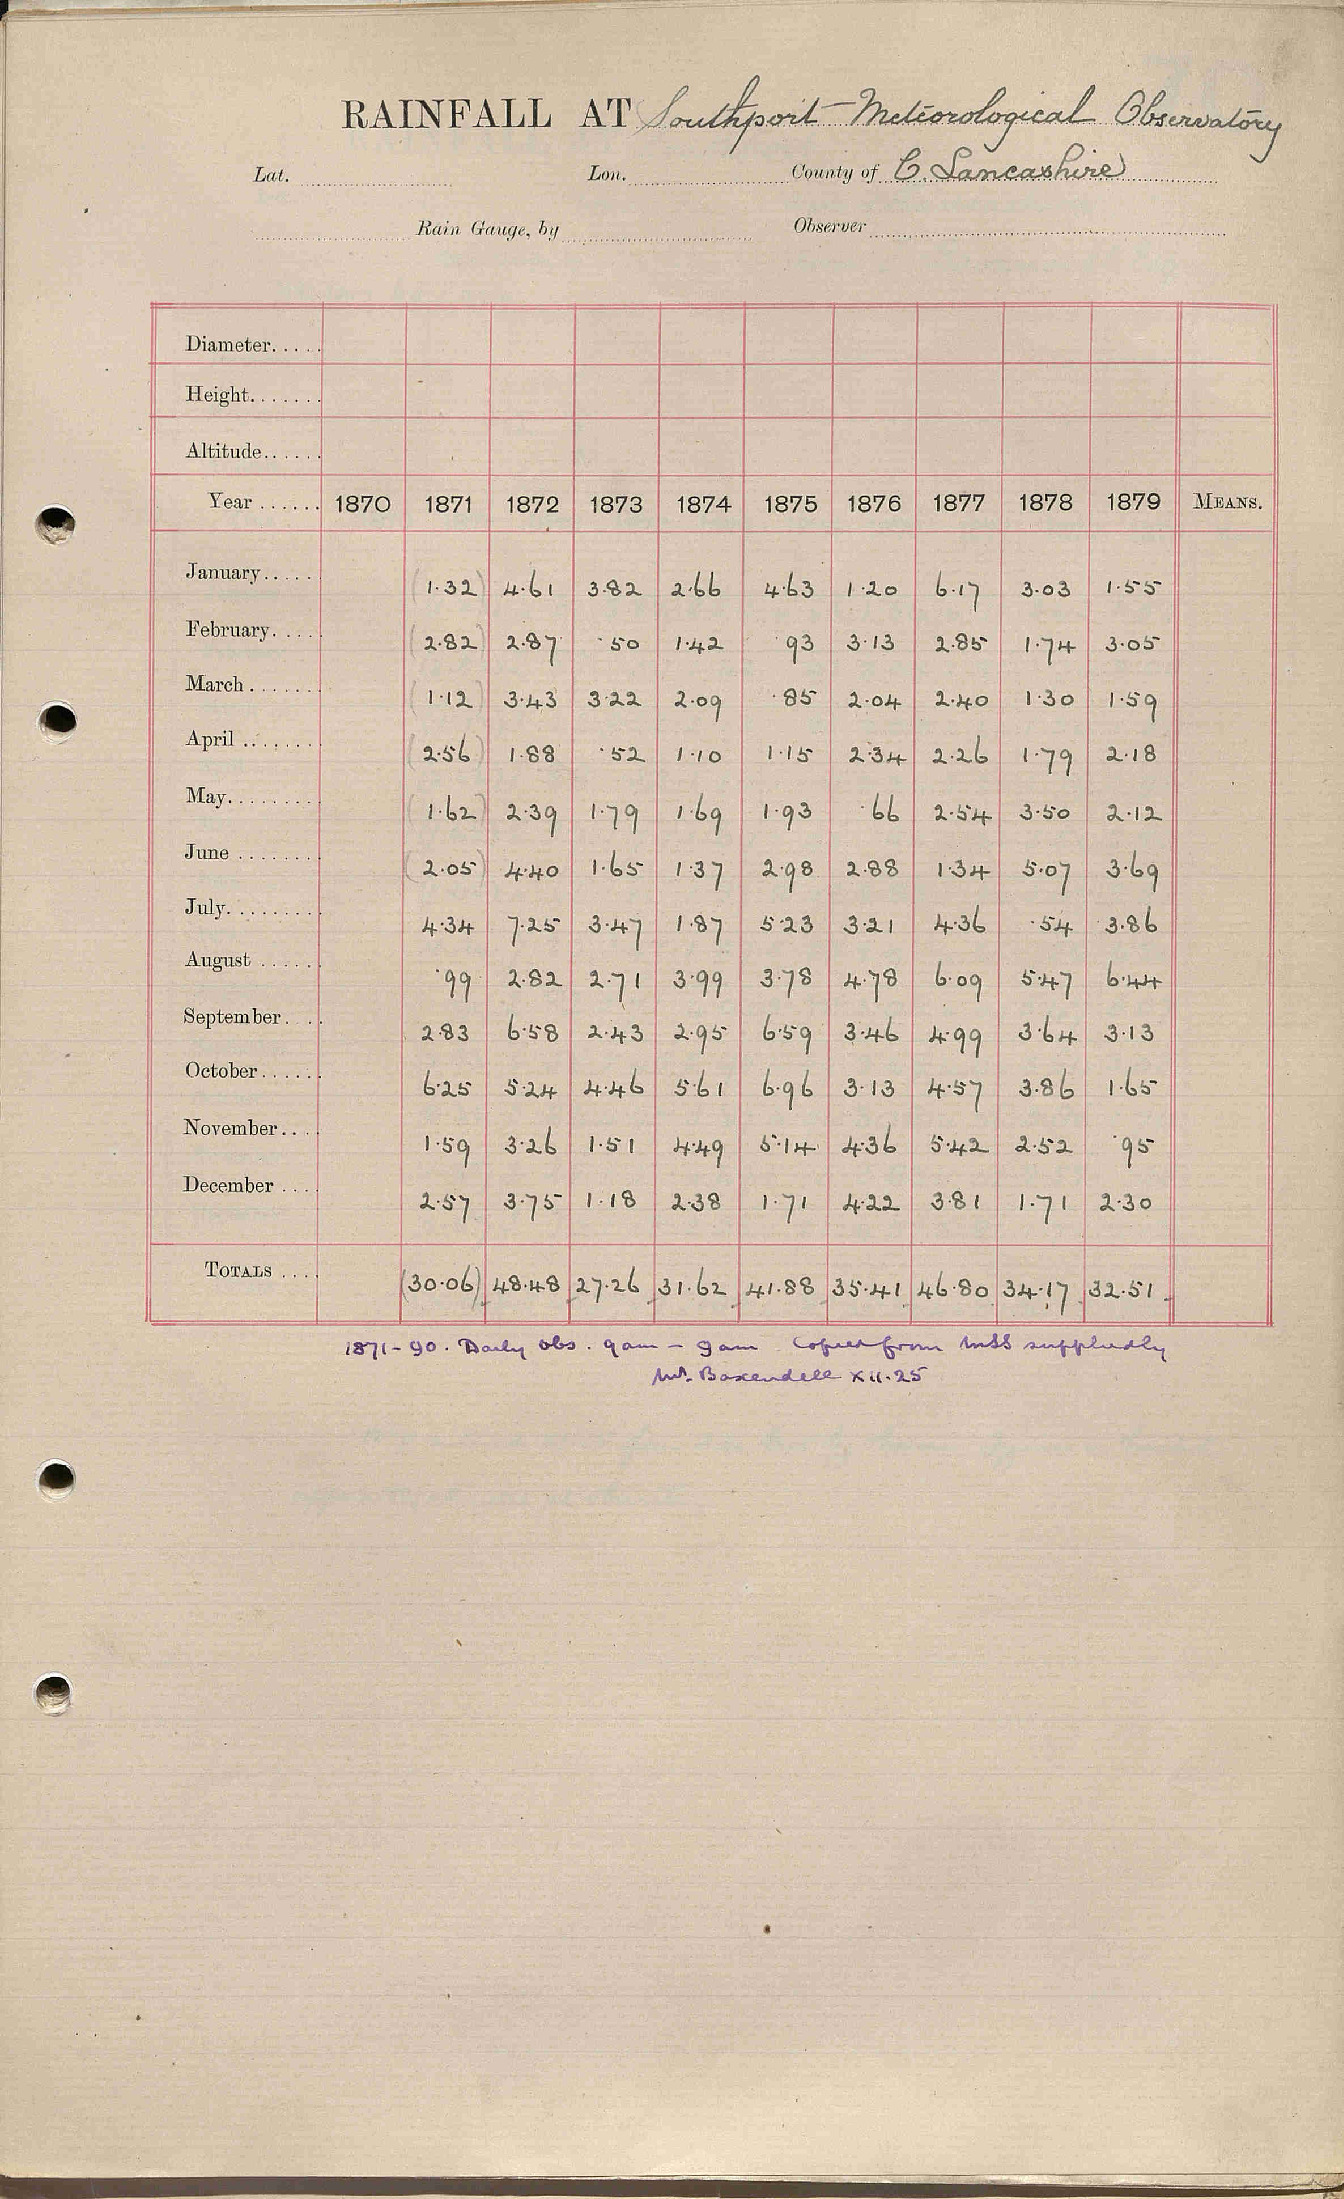 RAINFALL AT Southport Meteorological Observatory
Lat. Lon. County of C. Lancashire
Rain Gauge, by Observer
Diameter.....
Height.......
Altitude......
Year ...... 1870 1871 1872 1873 1874 1875 1876 1877 1878 1879 MEANS.
January..... (1.32) 4.61 3.82 2.66 4.63 1.20 6.17 3.03 1.55
February..... (2.82) 2.87 .50 1.42 93 3.13 2.85 1.74 3.05
March ....... (1.12) 3.43 3.22 2.09 .85 2.04 2.40 1.30 1.59
April ........ (2.56) 1.88 .52 1.10 1.15 2.34 2.26 1.79 2.18
May......... (1.62) 2.39 1.79 1.69 1.93 .66 2.54 3.50 2.12
June ........ (2.05) 4.40 1.65 1.37 2.98 2.88 1.34 5.07 3.69
July......... 4.34 7.25 3.47 1.87 5.23 3.21 4.36 .54 3.86
August ...... .99 2.82 2.71 3.99 3.78 4.78 6.09 5.47 6.44
September.... 2.83 6.58 2.43 2.95 6.59 3.46 4.99 3.64 3.13
October...... 6.25 5.24 4.46 5.61 6.96 3.13 4.57 3.86 1.65
November.... 1.59 3.26 1.51 4.49 5.14 4.36 5.42 2.52 .95
December .... 2.57 3.75 1.18 2.38 1.71 4.22 3.81 1.71 2.30
TOTALS .... (30.06) 48.48 27.26 31.62 41.88 35.41 46.80 34.17 32.51
1871-90. Daily obs. 9am - 9am Copied from MSS supplied by
Mr. Baxendell XII.25